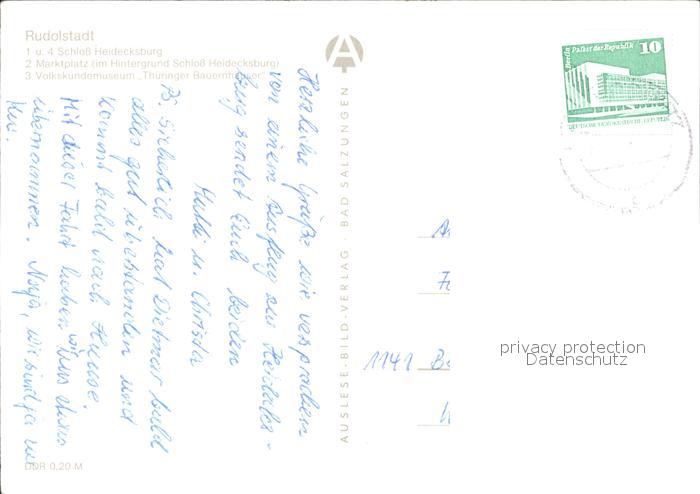 Rudolstadt
1 u. 4 Schloß Heidecksburg
2 Marktplatz (im Hintergrund Schloß Heidecksburg)
3 Volkskundemuseum „Thüringer Bauernhäuser"
Herzliche Grüße wie versprochen
von einem Ausflug zur Heidecks-
burg sendet Euch beiden
u. Christa
PS. Sicherlich hat Dietmar bald
alles gut überstanden und
kommt bald nach Hause.
Mit dieser Fahrt haben wir uns
übernommen. Naja, wir sind ja
DDR 0,20 M
AUSLESE-BILD-VERLAG · BAD SALZUNGEN
Berlin Palast der Republik
10
DEUTSCHE DEMOKRATISCHE REPUBLIK
1141 B
privacy protection
Datenschutz